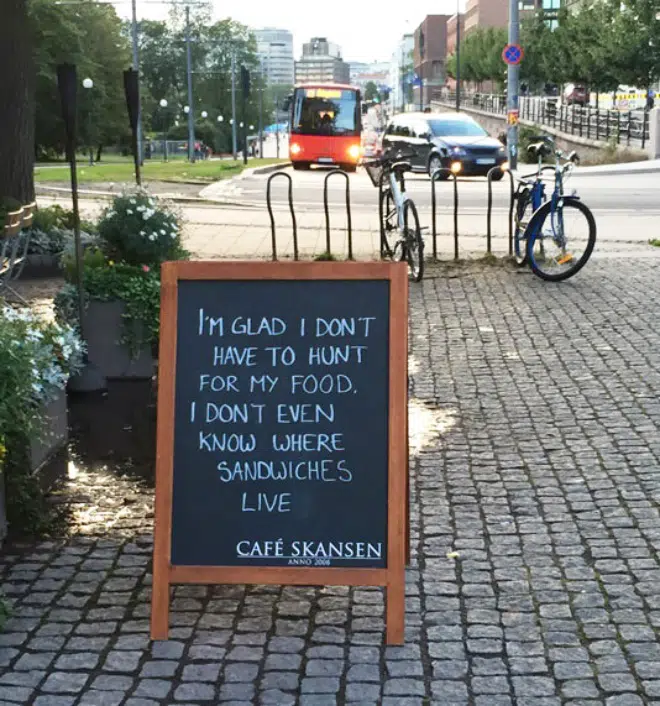 I'M GLAD I DON'T
HAVE TO HUNT
FOR MY FOOD.
I DON'T EVEN
KNOW WHERE
SANDWICHES
LIVE
CAFÉ SKANSEN
ANNO 2006